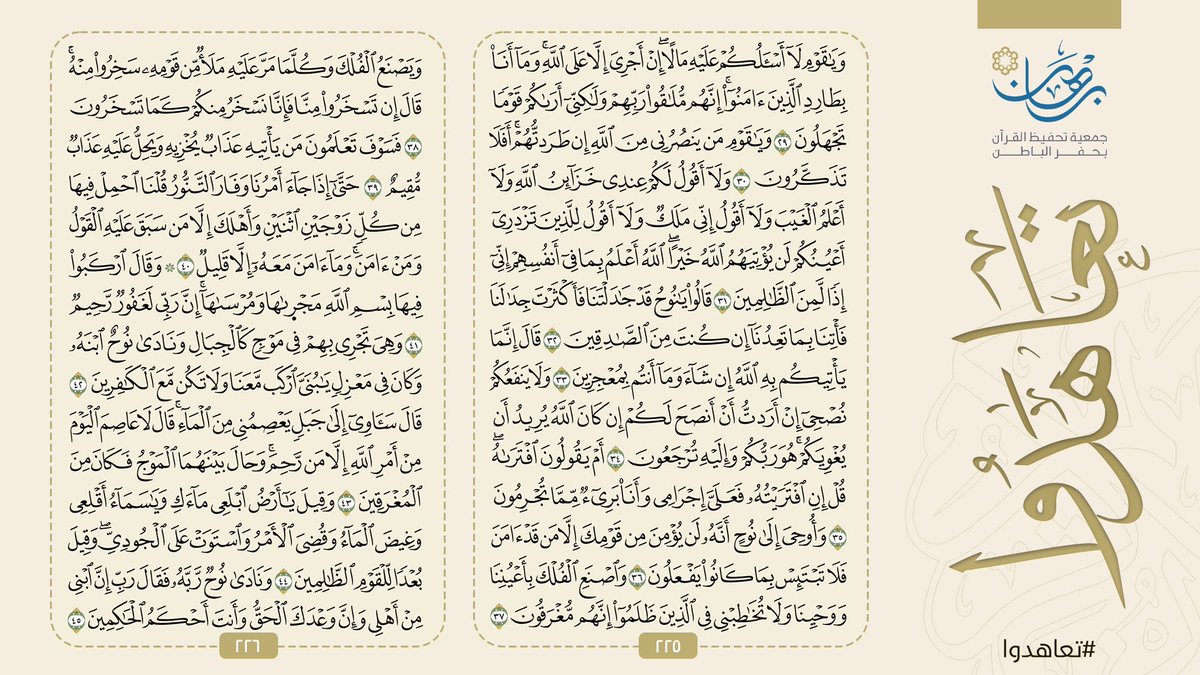 برهان
جمعية تحفيظ القرآن
بحفر الباطن
تعاهدوا
#تعاهدوا
وَيَٰقَوْمِ لَآ أَسْـَٔلُكُمْ عَلَيْهِ مَالًا ۖ إِنْ أَجْرِىَ إِلَّا عَلَى ٱللَّهِ ۚ وَمَآ أَنَا۠
بِطَارِدِ ٱلَّذِينَ ءَامَنُوٓا۟ ۚ إِنَّهُم مُّلَٰقُوا۟ رَبِّهِمْ وَلَٰكِنِّىٓ أَرَىٰكُمْ قَوْمًا
تَجْهَلُونَ ٢٩ وَيَٰقَوْمِ مَن يَنصُرُنِى مِنَ ٱللَّهِ إِن طَرَدتُّهُمْ ۚ أَفَلَا
تَذَكَّرُونَ ٣٠ وَلَآ أَقُولُ لَكُمْ عِندِى خَزَآئِنُ ٱللَّهِ وَلَآ
أَعْلَمُ ٱلْغَيْبَ وَلَآ أَقُولُ إِنِّى مَلَكٌ وَلَآ أَقُولُ لِلَّذِينَ تَزْدَرِىٓ
أَعْيُنُكُمْ لَن يُؤْتِيَهُمُ ٱللَّهُ خَيْرًا ۖ ٱللَّهُ أَعْلَمُ بِمَا فِىٓ أَنفُسِهِمْ ۖ إِنِّىٓ
إِذًا لَّمِنَ ٱلظَّٰلِمِينَ ٣١ قَالُوا۟ يَٰنُوحُ قَدْ جَٰدَلْتَنَا فَأَكْثَرْتَ جِدَٰلَنَا
فَأْتِنَا بِمَا تَعِدُنَآ إِن كُنتَ مِنَ ٱلصَّٰدِقِينَ ٣٢ قَالَ إِنَّمَا
يَأْتِيكُم بِهِ ٱللَّهُ إِن شَآءَ وَمَآ أَنتُم بِمُعْجِزِينَ ٣٣ وَلَا يَنفَعُكُمْ
نُصْحِىٓ إِنْ أَرَدتُّ أَنْ أَنصَحَ لَكُمْ إِن كَانَ ٱللَّهُ يُرِيدُ أَن
يُغْوِيَكُمْ ۚ هُوَ رَبُّكُمْ وَإِلَيْهِ تُرْجَعُونَ ٣٤ أَمْ يَقُولُونَ ٱفْتَرَىٰهُ ۖ
قُلْ إِنِ ٱفْتَرَيْتُهُۥ فَعَلَىَّ إِجْرَامِى وَأَنَا۠ بَرِىٓءٌ مِّمَّا تُجْرِمُونَ
٣٥ وَأُوحِىَ إِلَىٰ نُوحٍ أَنَّهُۥ لَن يُؤْمِنَ مِن قَوْمِكَ إِلَّا مَن قَدْ ءَامَنَ
فَلَا تَبْتَئِسْ بِمَا كَانُوا۟ يَفْعَلُونَ ٣٦ وَٱصْنَعِ ٱلْفُلْكَ بِأَعْيُنِنَا
وَوَحْيِنَا وَلَا تُخَٰطِبْنِى فِى ٱلَّذِينَ ظَلَمُوٓا۟ ۚ إِنَّهُم مُّغْرَقُونَ ٣٧
٢٢٥
وَيَصْنَعُ ٱلْفُلْكَ وَكُلَّمَا مَرَّ عَلَيْهِ مَلَأٌ مِّن قَوْمِهِۦ سَخِرُوا۟ مِنْهُ ۚ
قَالَ إِن تَسْخَرُوا۟ مِنَّا فَإِنَّا نَسْخَرُ مِنكُمْ كَمَا تَسْخَرُونَ
٣٨ فَسَوْفَ تَعْلَمُونَ مَن يَأْتِيهِ عَذَابٌ يُخْزِيهِ وَيَحِلُّ عَلَيْهِ عَذَابٌ
مُّقِيمٌ ٣٩ حَتَّىٰٓ إِذَا جَآءَ أَمْرُنَا وَفَارَ ٱلتَّنُّورُ قُلْنَا ٱحْمِلْ فِيهَا
مِن كُلٍّ زَوْجَيْنِ ٱثْنَيْنِ وَأَهْلَكَ إِلَّا مَن سَبَقَ عَلَيْهِ ٱلْقَوْلُ
وَمَنْ ءَامَنَ ۚ وَمَآ ءَامَنَ مَعَهُۥٓ إِلَّا قَلِيلٌ ٤٠ ۞ وَقَالَ ٱرْكَبُوا۟
فِيهَا بِسْمِ ٱللَّهِ مَجْر۪ىٰهَا وَمُرْسَىٰهَآ ۚ إِنَّ رَبِّى لَغَفُورٌ رَّحِيمٌ
٤١ وَهِىَ تَجْرِى بِهِمْ فِى مَوْجٍ كَٱلْجِبَالِ وَنَادَىٰ نُوحٌ ٱبْنَهُۥ
وَكَانَ فِى مَعْزِلٍ يَٰبُنَىَّ ٱرْكَب مَّعَنَا وَلَا تَكُن مَّعَ ٱلْكَٰفِرِينَ ٤٢
قَالَ سَـَٔاوِىٓ إِلَىٰ جَبَلٍ يَعْصِمُنِى مِنَ ٱلْمَآءِ ۚ قَالَ لَا عَاصِمَ ٱلْيَوْمَ
مِنْ أَمْرِ ٱللَّهِ إِلَّا مَن رَّحِمَ ۚ وَحَالَ بَيْنَهُمَا ٱلْمَوْجُ فَكَانَ مِنَ
ٱلْمُغْرَقِينَ ٤٣ وَقِيلَ يَٰٓأَرْضُ ٱبْلَعِى مَآءَكِ وَيَٰسَمَآءُ أَقْلِعِى
وَغِيضَ ٱلْمَآءُ وَقُضِىَ ٱلْأَمْرُ وَٱسْتَوَتْ عَلَى ٱلْجُودِىِّ ۖ وَقِيلَ
بُعْدًا لِّلْقَوْمِ ٱلظَّٰلِمِينَ ٤٤ وَنَادَىٰ نُوحٌ رَّبَّهُۥ فَقَالَ رَبِّ إِنَّ ٱبْنِى
مِنْ أَهْلِى وَإِنَّ وَعْدَكَ ٱلْحَقُّ وَأَنتَ أَحْكَمُ ٱلْحَٰكِمِينَ ٤٥
٢٢٦